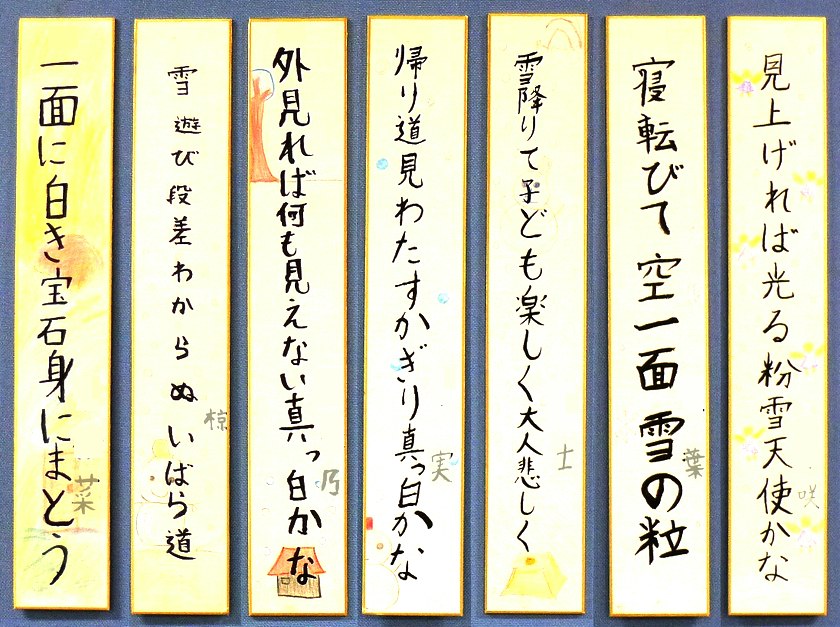 見上げれば光る粉雪天使かな
咲
寝転びて空一面雪の粒
葉
雪降りて子ども楽しく大人悲しく
士
帰り道見わたすかぎり真っ白かな
実
外見れば何も見えない真っ白かな
乃
雪遊び段差わからぬいばら道
椋
一面に白き宝石身にまとう
菜